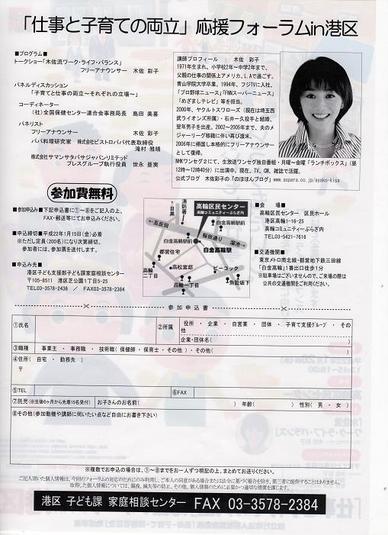 「仕事と子育ての両立」応援フォーラムin港区
■プログラム■
トークショー「木佐流ワーク・ライフ・バランス」
フリーアナウンサー 木佐 彩子
パネルディスカッション
「子育てと仕事の両立〜それぞれの立場〜」
コーディネーター
(社)全国保健センター連合会事務局長 島田 美喜
パネリスト
フリーアナウンサー 木佐 彩子
パパ料理研究家 株式会社ビストロパパ代表取締役
滝村 雅晴
株式会社サマンサタバサジャパンリミテッド
プレスグループ執行役員
講師プロフィール 木佐 彩子
1971年生まれ、小学校2年〜中学2年まで、
父親の仕事の関係上アメリカ、LAで過ごす。
青山学院大学卒業、1994年、フジTVに入社、
「プロ野球ニュース」「FNXスーパーニュース」
「めざましテレビ」等を担当。
2000年、ヤクルトスワローズ(現在は埼玉西
武ライオンズ所属)の石井一久投手と結婚、
翌年男子を出産。2002〜2005年まで、夫のメ
ジャー移籍に伴い再び渡米。
2006年に帰国し本格的にフリーアナウンサー
として復帰。
NHKワンセグ2にて、生放送ワンセグ独自番組・月曜〜金曜「ランチボックス」(昼
12時〜12時40分)に出演中。現在、TV、CM、雑誌で活躍。
公式ブログ 木佐彩子の「のほほんブログ」
参加費無料
■参加申込み■下記申込書に①〜⑧をご記入の上、
FAX・郵送等にてお申込ください。
■申込締切■平成22年1月15日(金)必着
※ただし定員(200名)になり次第締切、
参加者には、参加票を送付します。
■申込先■
港区子ども支援部子ども課家庭相談センター
〒105-8511 港区芝公園1丁目5-25
TEL03-3578-2436 / FAX03-3578-2384
高輪区民センター
高輪コミュニティーぷらざ内
白金高輪駅
■会 場■
高輪区民センター 区民ホール
港区高輪1-16-25
高輪コミュニティーぷらざ内
TEL03-5421-7616
■交通機関■
東京メトロ南北線・都営地下鉄三田線
「白金高輪」1番出口徒歩1分
※駐車場はございませんので、ご来場の際は
公共の交通機関をご利用ください。
参加申込書
①氏名
②所属
役所 ・ 企業 ・ 自営業 ・ 団体 ・ 子育て支援グループ ・ その他
企業・団体名( )
③職種 事業主 ・ 事務職 ・ 技術職(保健師・保育士・その他)・その他( )
④住所(自宅・勤務先)
〒
⑤TEL
⑥FAX
⑦託児(※生後6ヶ月から先着15名受付) お子さんのお名前( ) 年齢( ) 性別(男・女)
⑧その他(参加動機や講師に聞いたい点など自由にお書き下さい)
※複数でお申込の場合は、①〜⑧までをお一人ずつ明記の上、まとめてお送りください。
港区 子ども課 家庭相談センター FAX 03-3578-2384